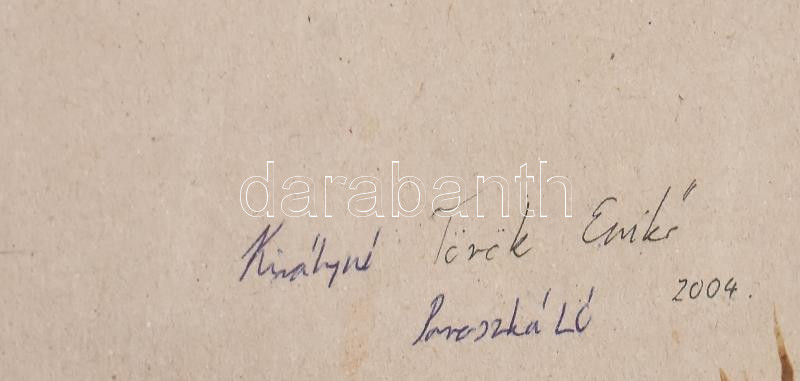 darabanth
Királyné Török Emikő
2004.
Poroszkáló